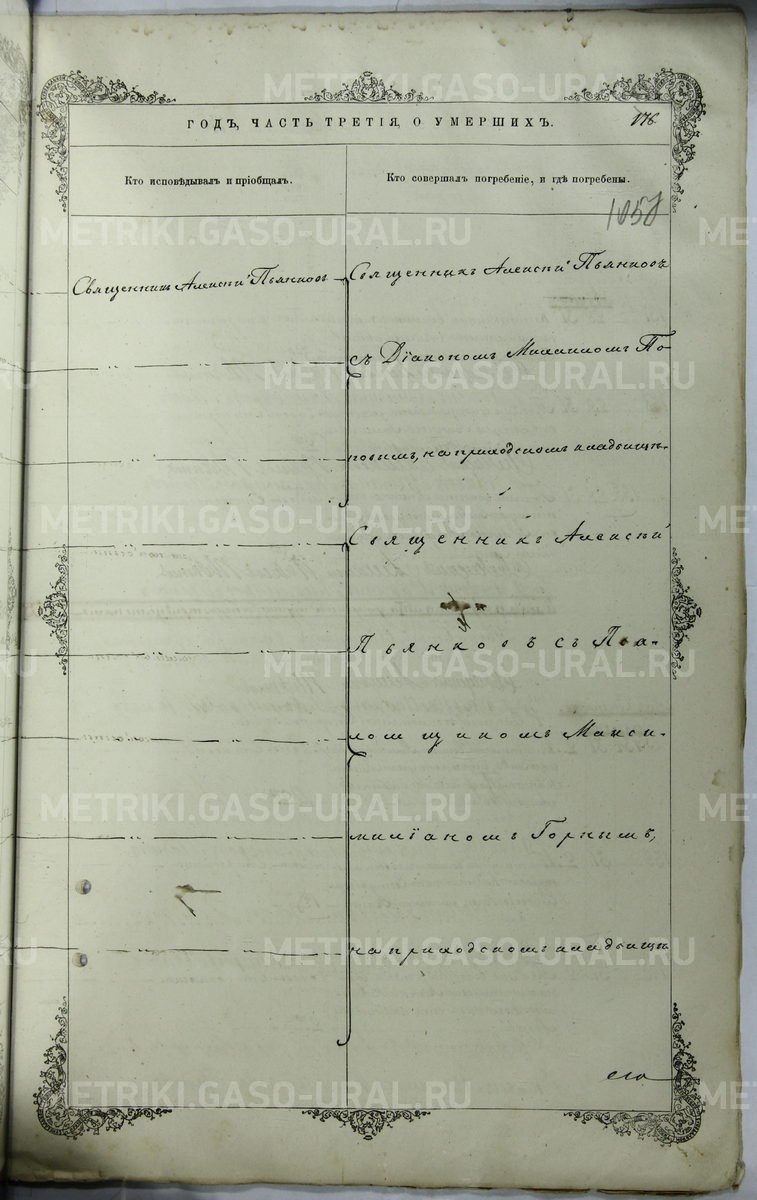 ГОДЪ, ЧАСТЬ ТРЕТІЯ, О УМЕРШИХЪ.
176.
Кто исповѣдывалъ и пріобщалъ.
Кто совершалъ погребеніе, и гдѣ погребены.
1058
Священникъ Алексій Пьянковъ
Священникъ Алексій Пьянковъ
съ Діакономъ Михаиломъ По-
повымъ, на приходскомъ кладбищѣ.
Священникъ Алексій
Пьянковъ съ Пса-
ломщикомъ Макси-
миліаномъ Горнымъ,
на приходскомъ кладбищѣ
METRIKI.GASO-URAL.RU